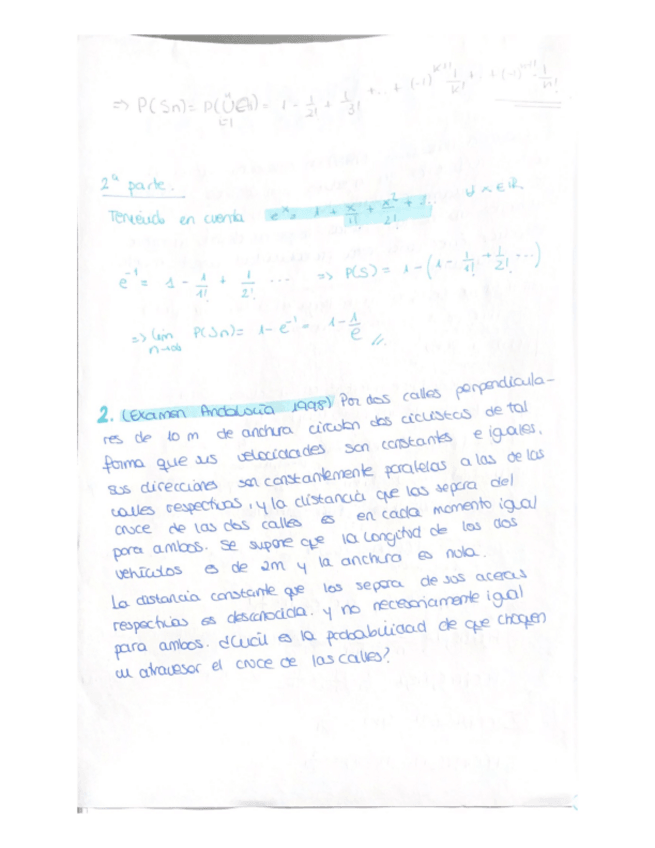 ⇒ P(Sn) = P(⋃ⁿᵢ₌₁ Ei) = 1 - 1/2! + 1/3! + ... + (-1)^(k+1) 1/k! + ... + (-1)^(n+1) 1/n!
2ª parte.
Teniendo en cuenta e^x = 1 + x/1! + x²/2! + ... ∀ x ∈ ℝ.
e^-1 = 1 - 1/1! + 1/2! ... ⇒ P(S) = 1 - (1 - 1/1! + 1/2! ...)
⇒ lim n→∞ P(Sn) = 1 - e^-1 = 1 - 1/e //.
2. (Examen Andalucía 1998) Por dos calles perpendicula-
res de 10 m de anchura circulan dos ciclistas de tal
forma que sus velocidades son constantes e iguales,
sus direcciones son constantemente paralelas a las de las
calles respectivas, y la distancia que las separa del
cruce de las dos calles es en cada momento igual
para ambos. Se supone que la longitud de los dos
vehículos es de 2m y la anchura es nula.
La distancia constante que los separa de sus aceras
respectivas es desconocida. y no necesariamente igual
para ambos. ¿Cuál es la probabilidad de que choquen
al atravesar el cruce de las calles?